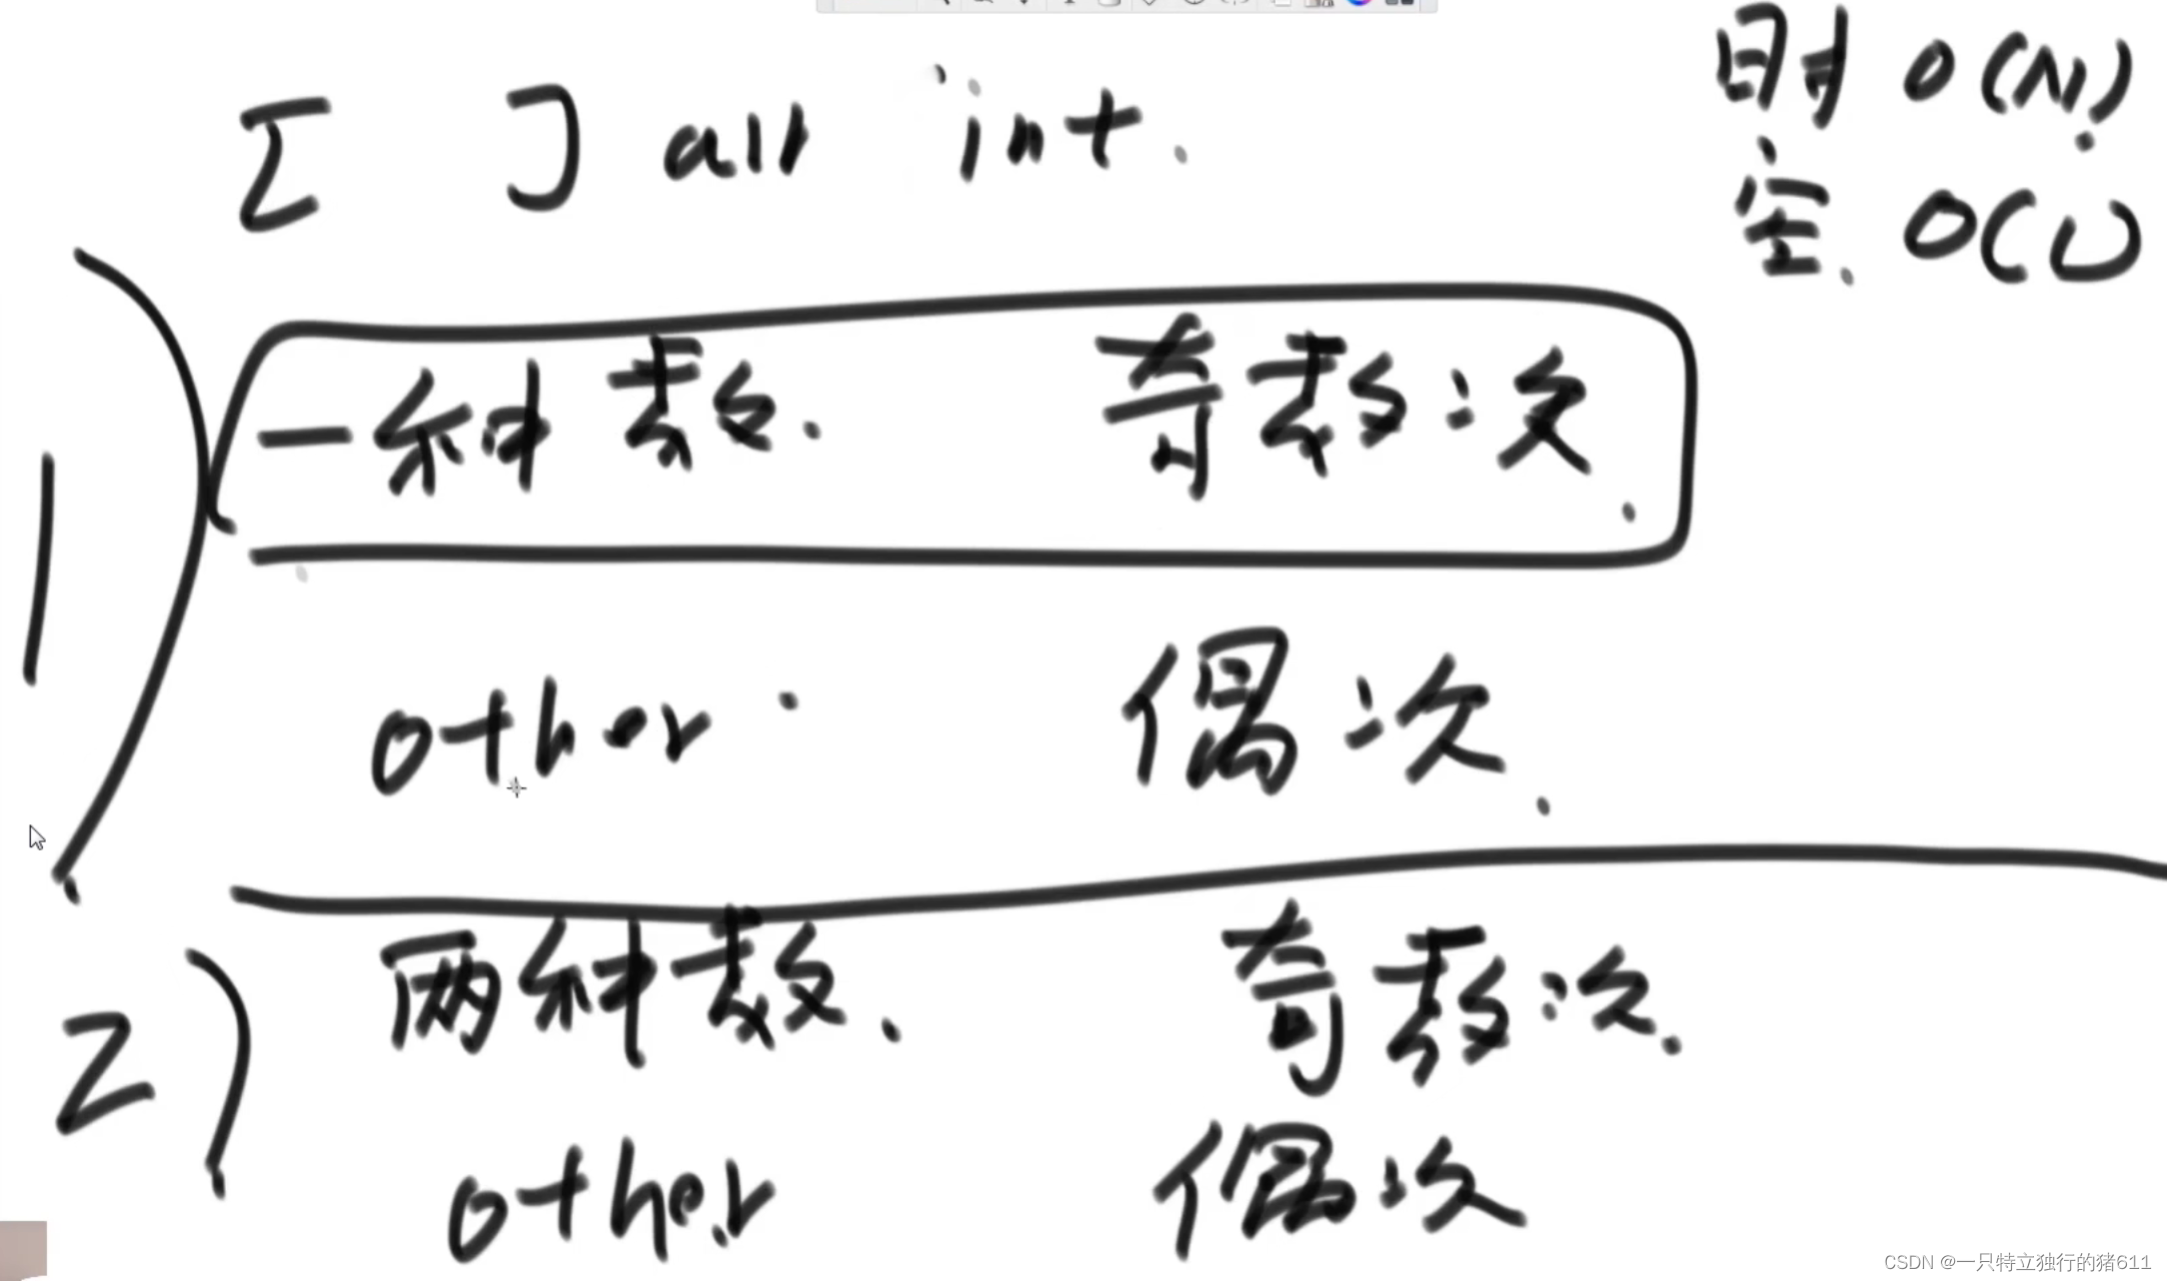 [ ] all int.
时 O(N)
空. O(1)
1) 一种数. 奇数次.
other. 偶次.
2) 两种数. 奇数次.
other 偶次
CSDN @一只特立独行的猪611